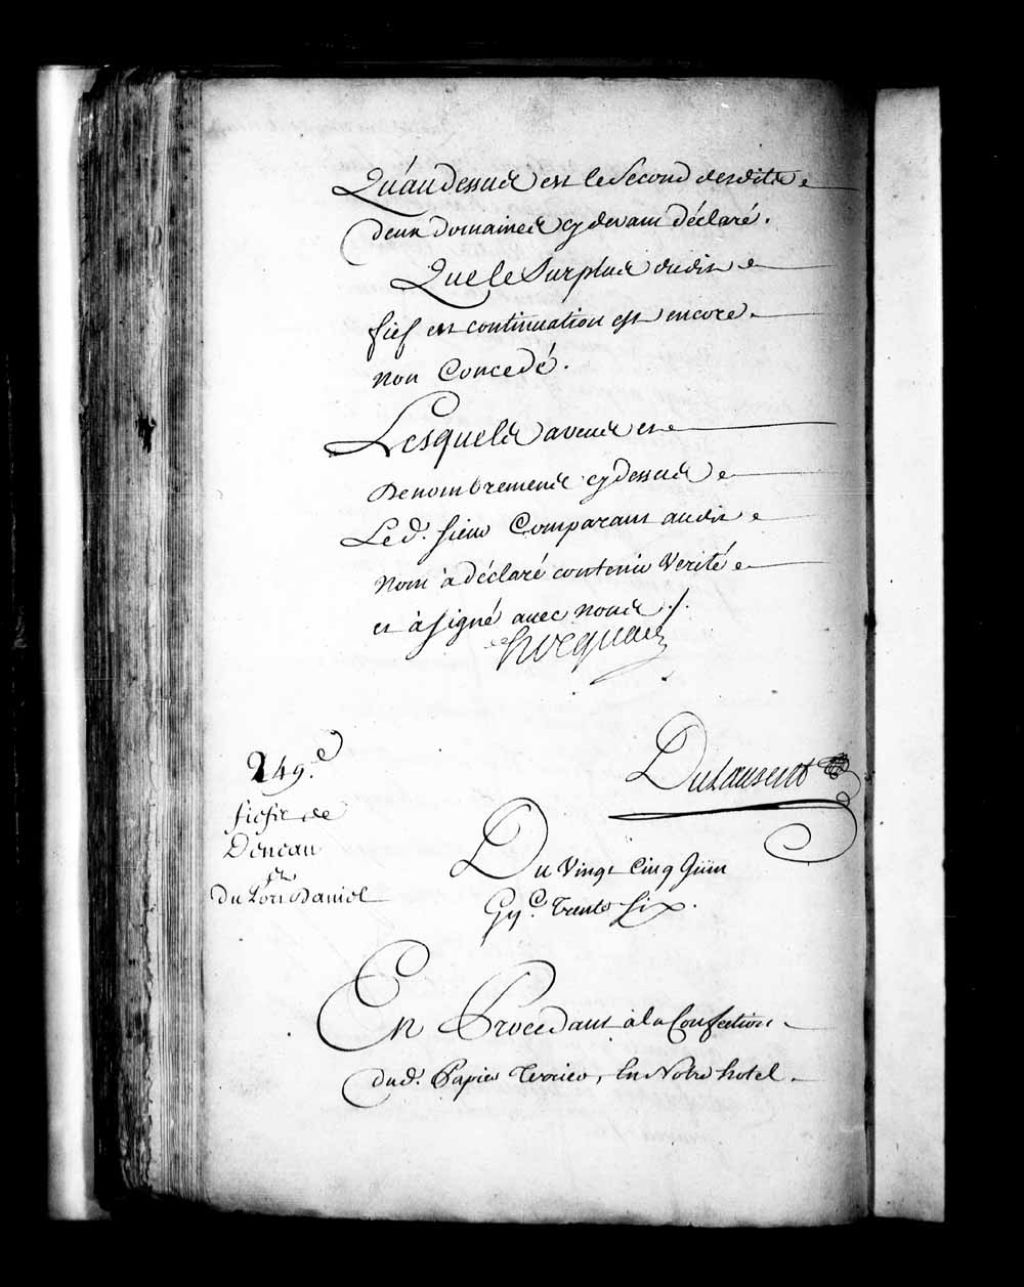 Qu'au dessus est le Second desdits
deux domaines cy devant déclaré.
Que le Surplus dudit
fief et continuation est encore
non Concedé.
Lesquels aveus et
Denombremens cy dessus
Led. Sieur Comparant audit
Nom à déclaré contenir Verité
et à signé avec nous ./.
hocquart
Dulaurent
249.e
fiefs de
Deneau
et
du Tort Daniel
Du Vingt Cinq Juin
Gyc. Trente Six.
En Procedant à la Confection
dud. Papier Terrier, En Notre hotel